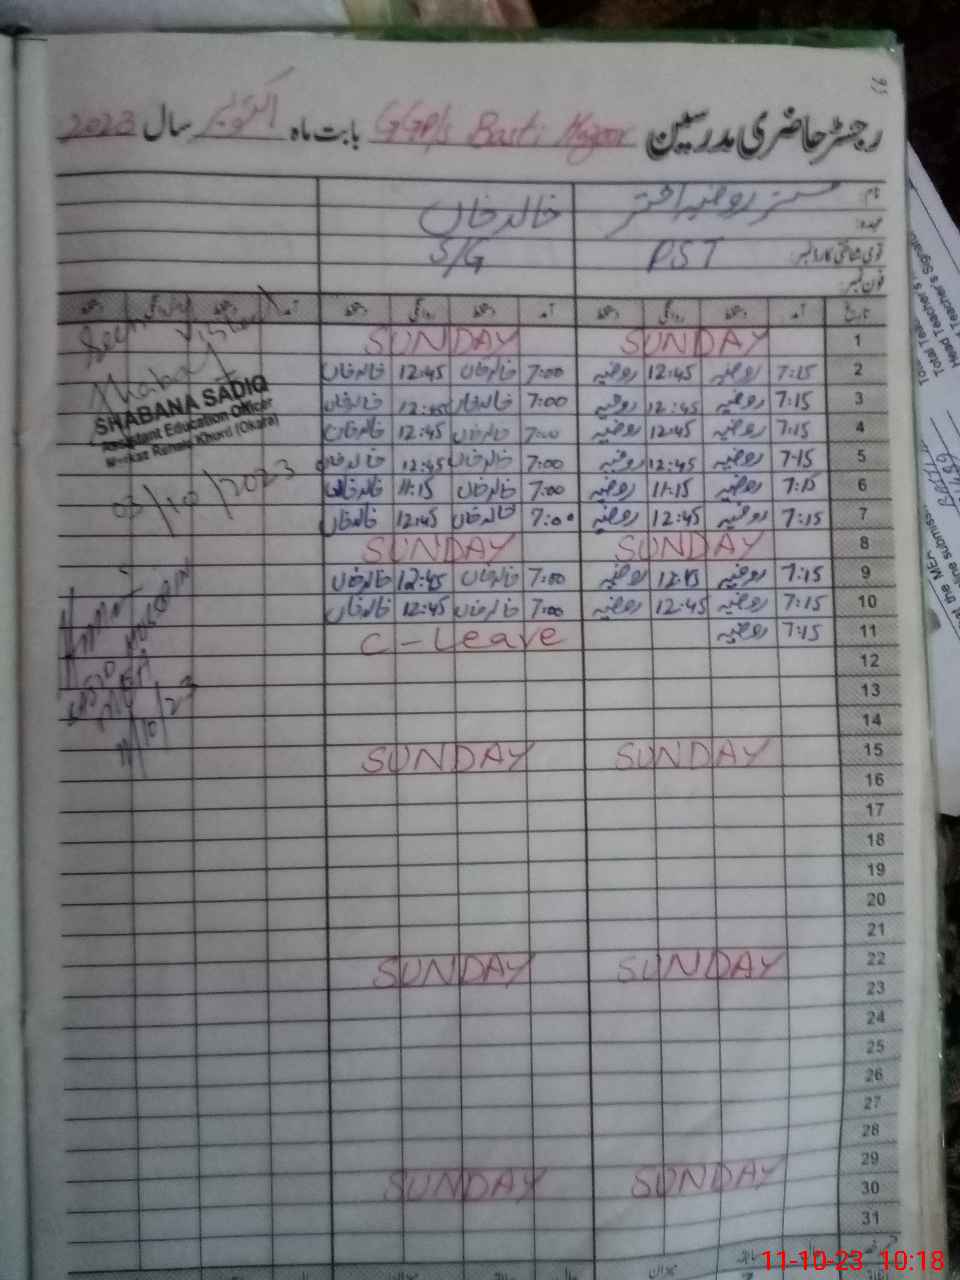 رجسٹر حاضری مدرسین GGP/S Basti بابت ماہ اکتوبر سال 2023
نام:
خالد خان
عہدہ:
PST S/G
قومی شناختی کارڈ نمبر:
فون نمبر:
تاریخ آمد دستخط روانگی دستخط آمد دستخط روانگی دستخط آمد دستخط روانگی دستخط
1 SUNDAY SUNDAY
2 7:15 روضیہ 12:45 روضیہ 7:00 خالد خان 12:45 خالد خان
3 7:15 روضیہ 12:45 روضیہ 7:00 خالد خان 12:45 خالد خان
4 7:15 روضیہ 12:45 روضیہ 7:00 خالد خان 12:45 خالد خان
5 7:15 روضیہ 12:45 روضیہ 7:00 خالد خان 12:45 خالد خان
6 7:15 روضیہ 11:15 روضیہ 7:00 خالد خان 11:15 خالد خان
7 7:15 روضیہ 12:45 روضیہ 7:00 خالد خان 12:45 خالد خان
8 SUNDAY SUNDAY
9 7:15 روضیہ 12:45 روضیہ 7:00 خالد خان 12:45 خالد خان
10 7:15 روضیہ 12:45 روضیہ 7:00 خالد خان 12:45 خالد خان
11 7:15 روضیہ C-Leave
12
13
14
15 SUNDAY SUNDAY
16
17
18
19
20
21
22 SUNDAY SUNDAY
23
24
25
26
27
28
29
30 SUNDAY SUNDAY
31
Seen Visited
SHABANA SADIQ
Assistant Education Officer
Markaz Renala Khurd (Okara)
03/10/2023
11/10/23
Head Teacher's
Teacher's Signature
11-10-23 10:18